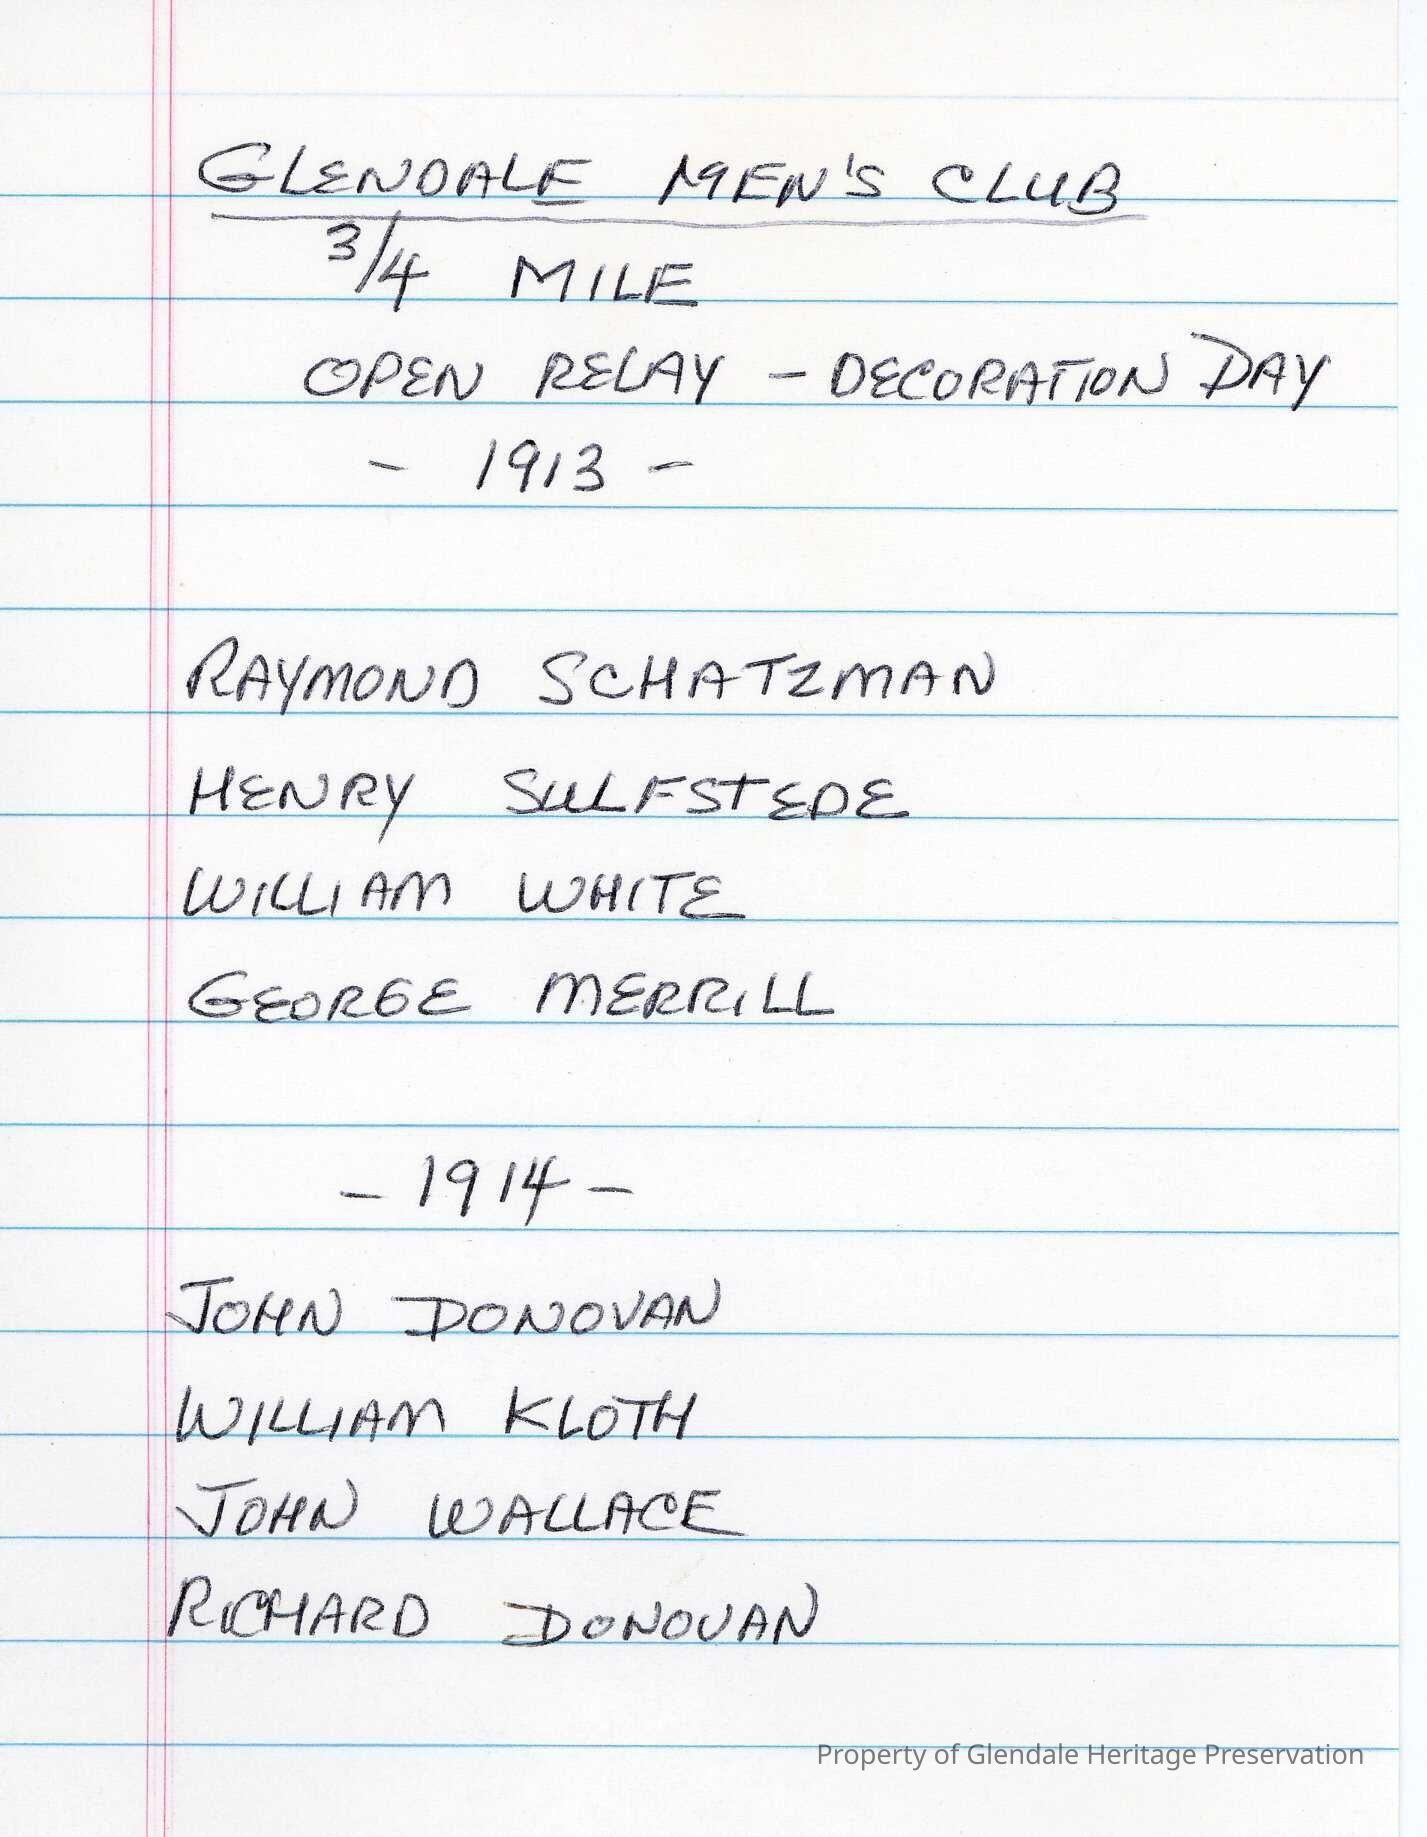 GLENDALE MEN'S CLUB
3/4 MILE
OPEN RELAY - DECORATION DAY
- 1913 -
RAYMOND SCHATZMAN
HENRY SULFSTEDE
WILLIAM WHITE
GEORGE MERRILL
- 1914 -
JOHN DONOVAN
WILLIAM KLOTH
JOHN WALLACE
RICHARD DONOVAN
Property of Glendale Heritage Preservation